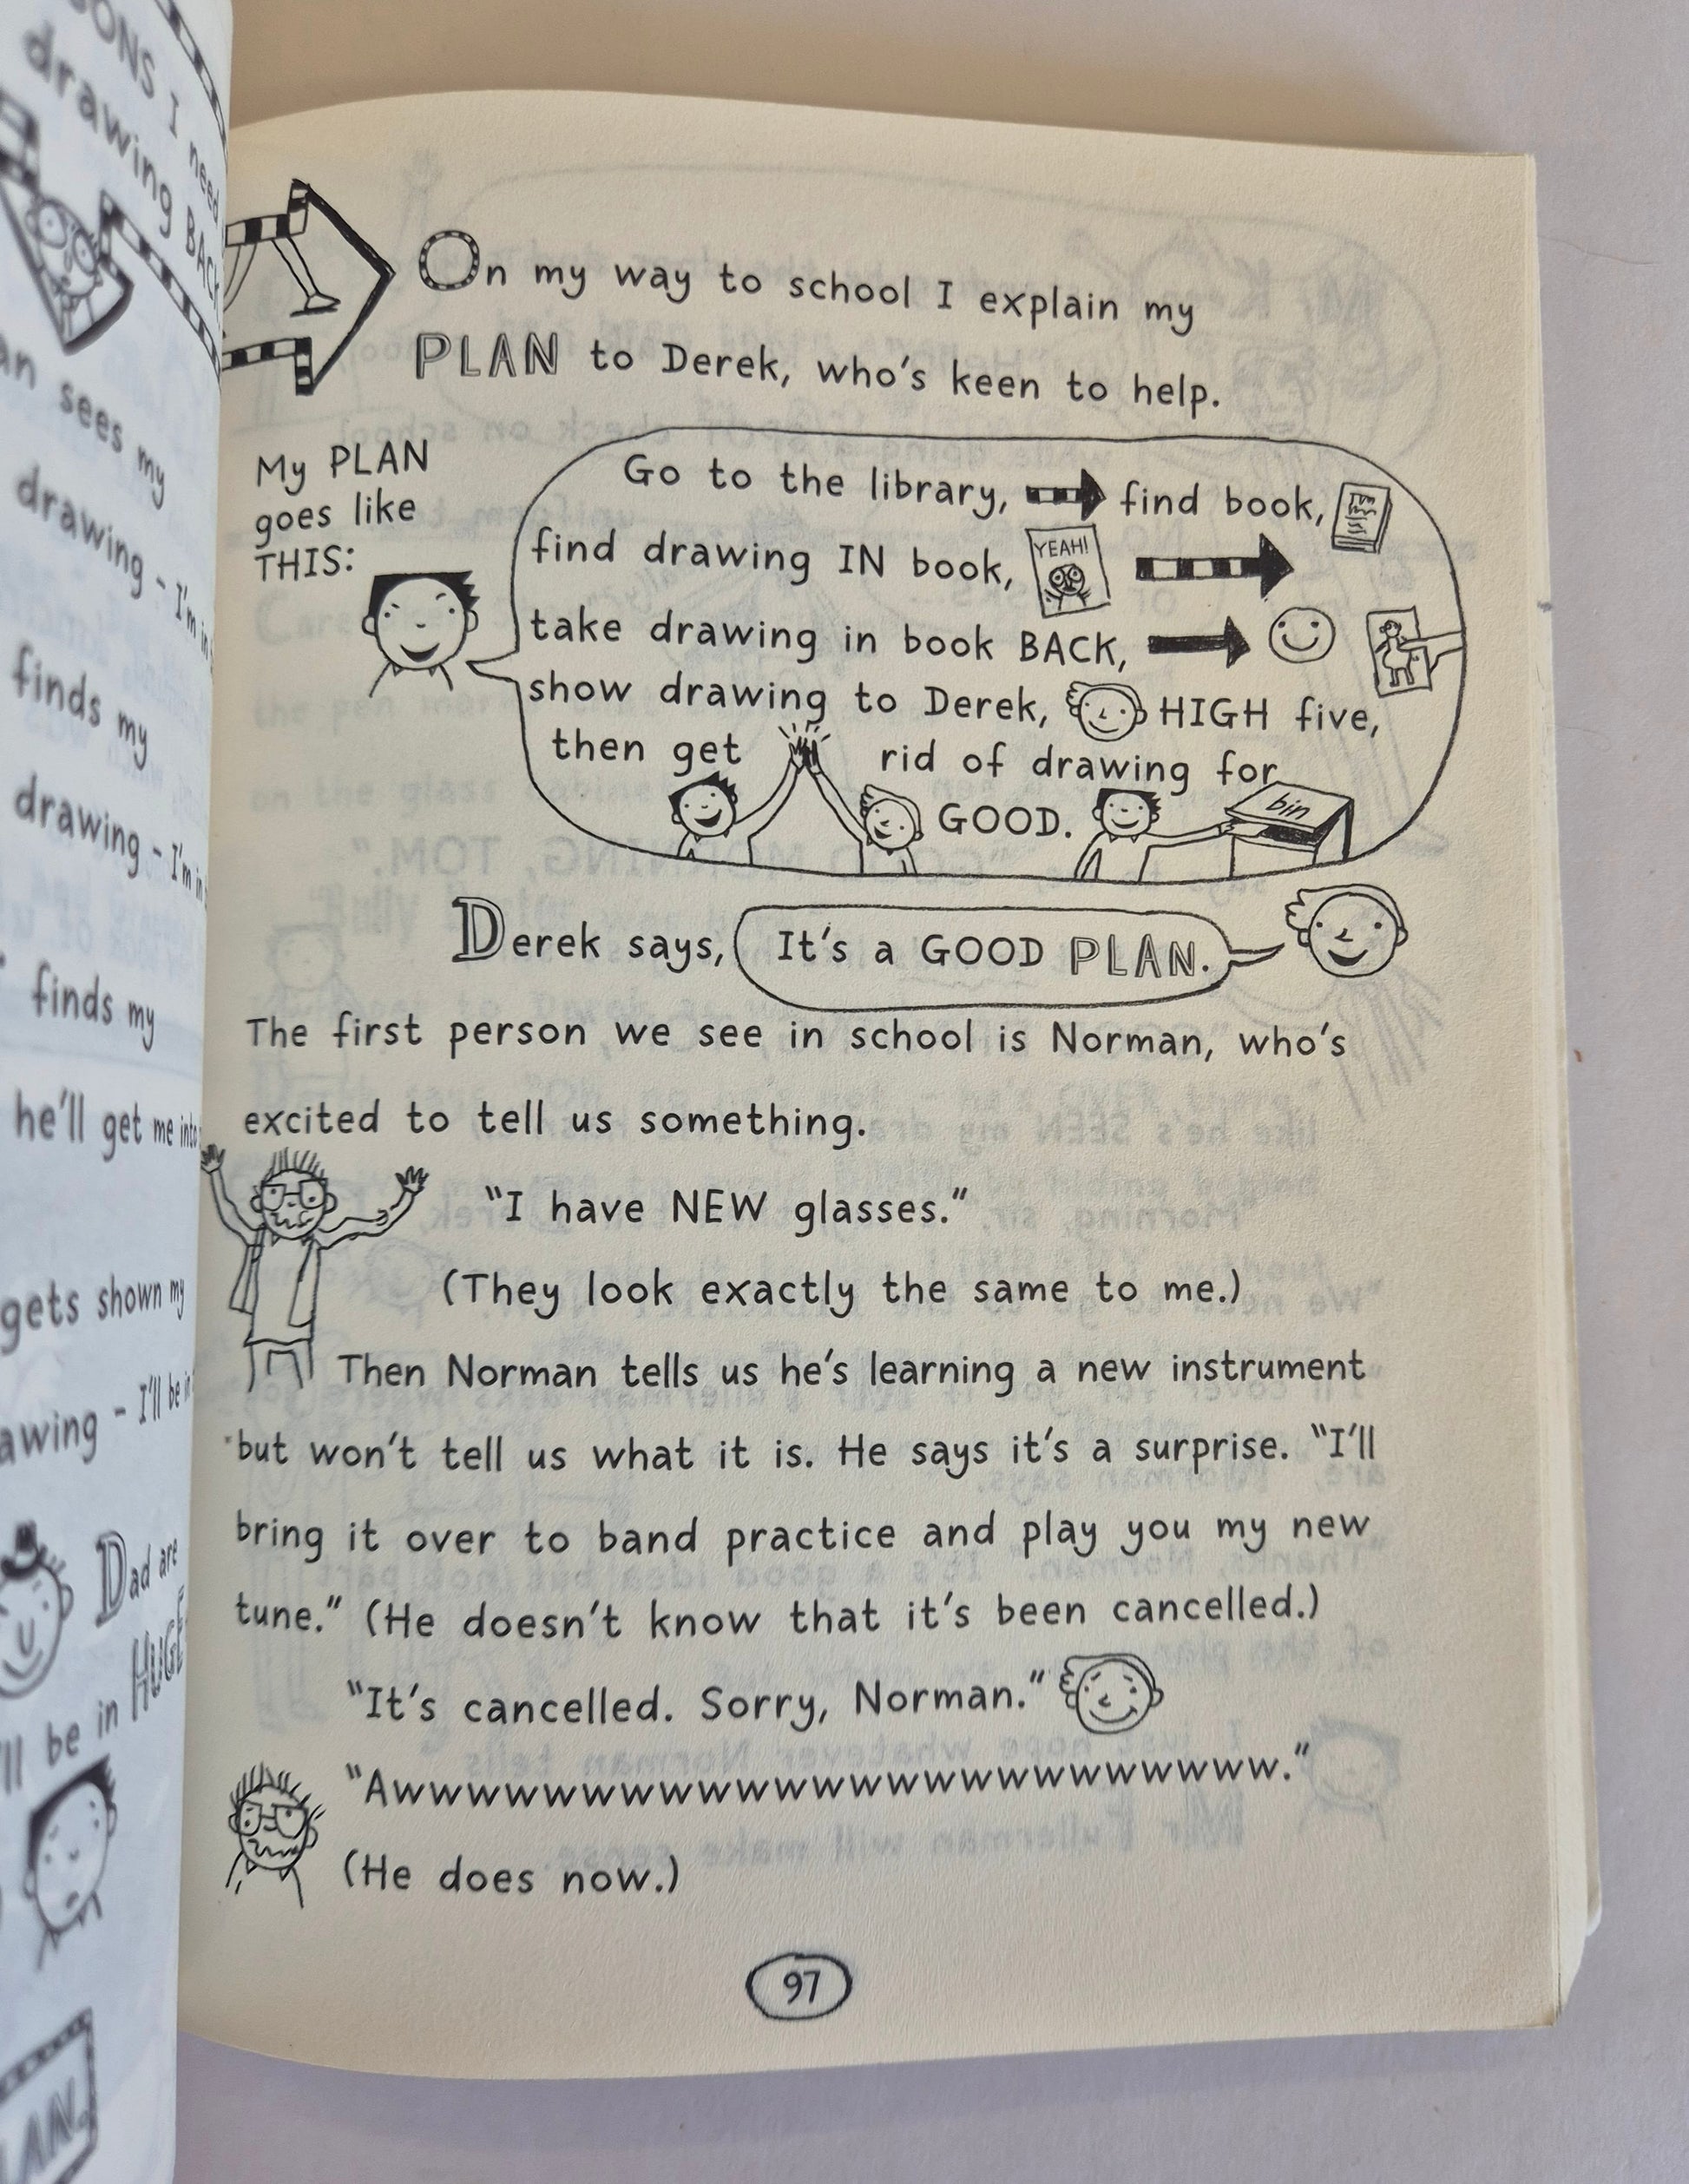 ONS I need
drawing BACK
an sees my
drawing - I'm in
finds my
drawing - I'm in
finds my
he'll get me into
gets shown my
awing - I'll be in
Dad are
HUGE
'll be in
LAN.
On my way to school I explain my
PLAN to Derek, who's keen to help.
My PLAN
goes like
THIS:
Go to the library, find book,
find drawing IN book,
YEAH!
take drawing in book BACK,
show drawing to Derek, HIGH five,
then get rid of drawing for
GOOD.
bin
Derek says, It's a GOOD PLAN.
The first person we see in school is Norman, who's
excited to tell us something.
"I have NEW glasses."
(They look exactly the same to me.)
Then Norman tells us he's learning a new instrument
but won't tell us what it is. He says it's a surprise. "I'll
bring it over to band practice and play you my new
tune." (He doesn't know that it's been cancelled.)
"It's cancelled. Sorry, Norman."
"Awwwwwwwwwwwwwwwwwwwwwwwww."
(He does now.)
97